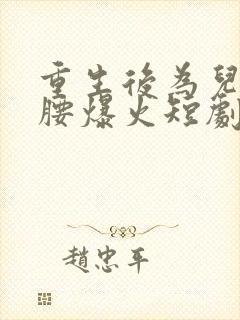 重生後為兒
腰爆火短劇
趙忠平